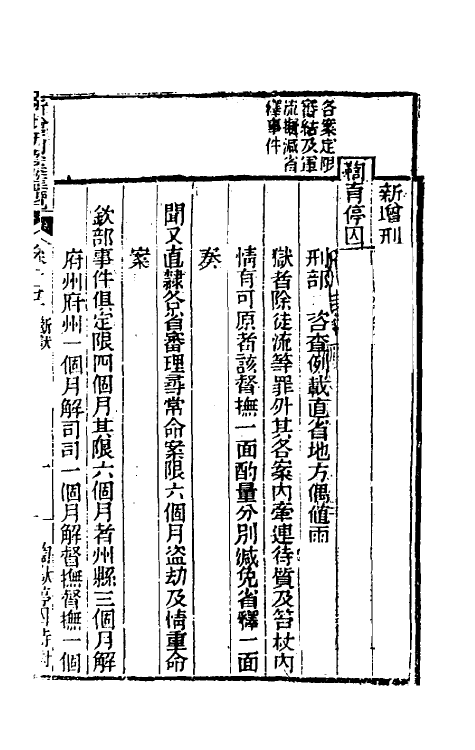 新增刑
鞫育停囚
各案定限
審結及軍
流擬減省
釋事件
刑部 咨查例載直省地方偶值雨
獄者除徒流等罪外其各案內牽連待質及笞杖內
情有可原者該督撫一面酌量分別減免省釋一面
奏
聞又直隸各省審理尋常命案限六個月盜劫及情重命
案
欽部事件俱定限四個月其限六個月者州縣三個月解
府州府州一個月解司司一個月解督撫督撫一個
斷獄